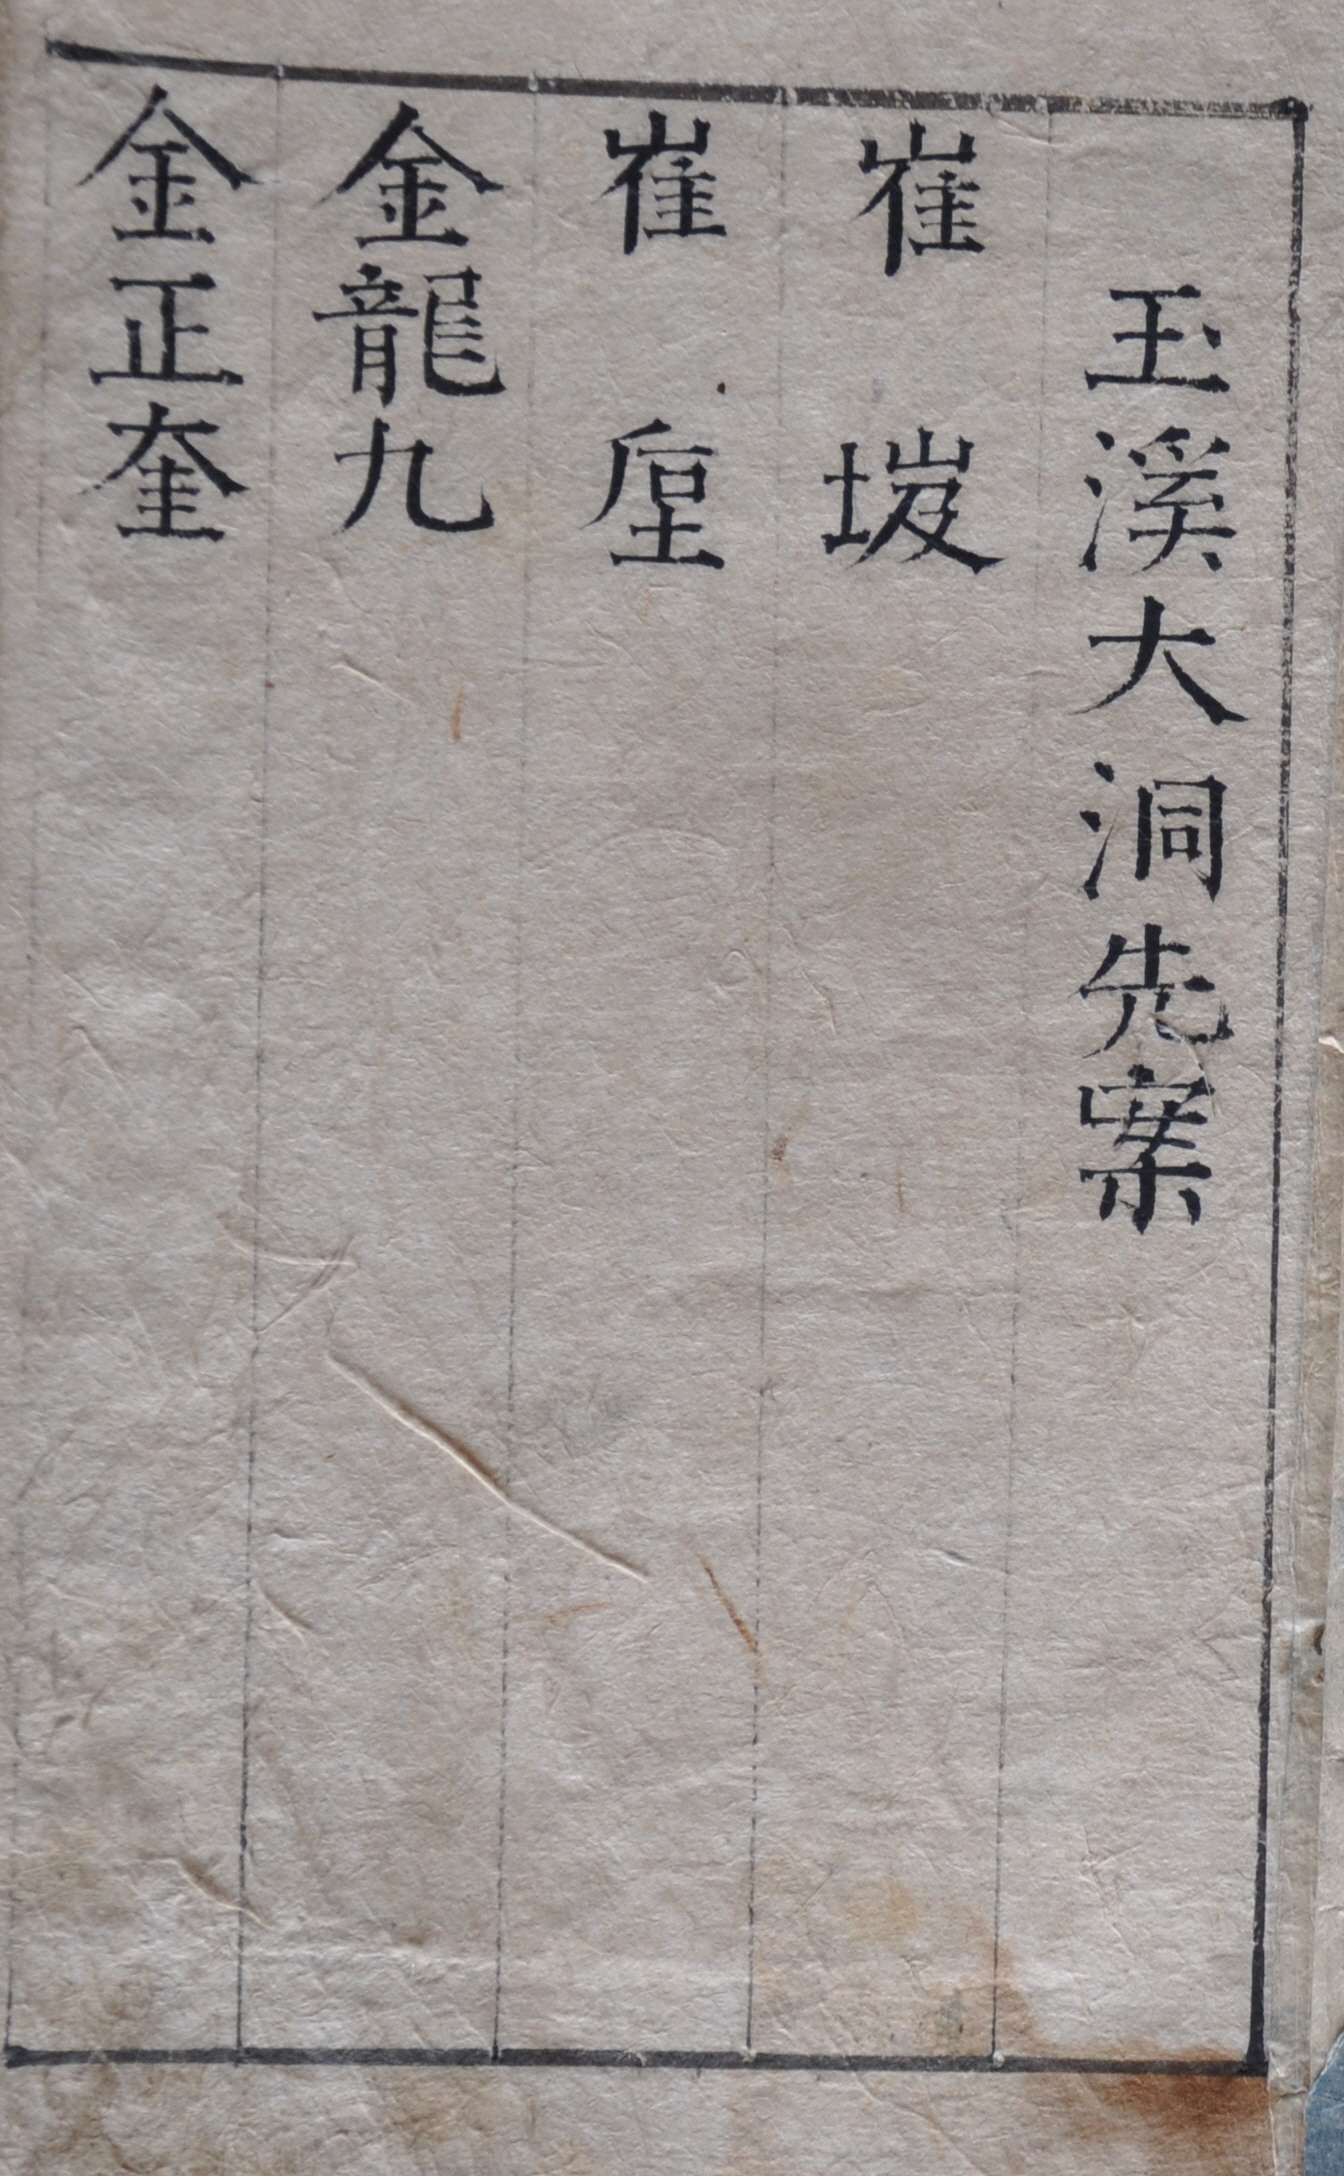 玉溪大洞先案
崔
崔垕
金龍九
金正奎